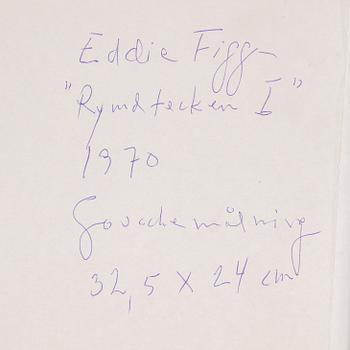 Eddie Figge
"Rymdtecken I"
1970
Gouachemålning
32,5 x 24 cm